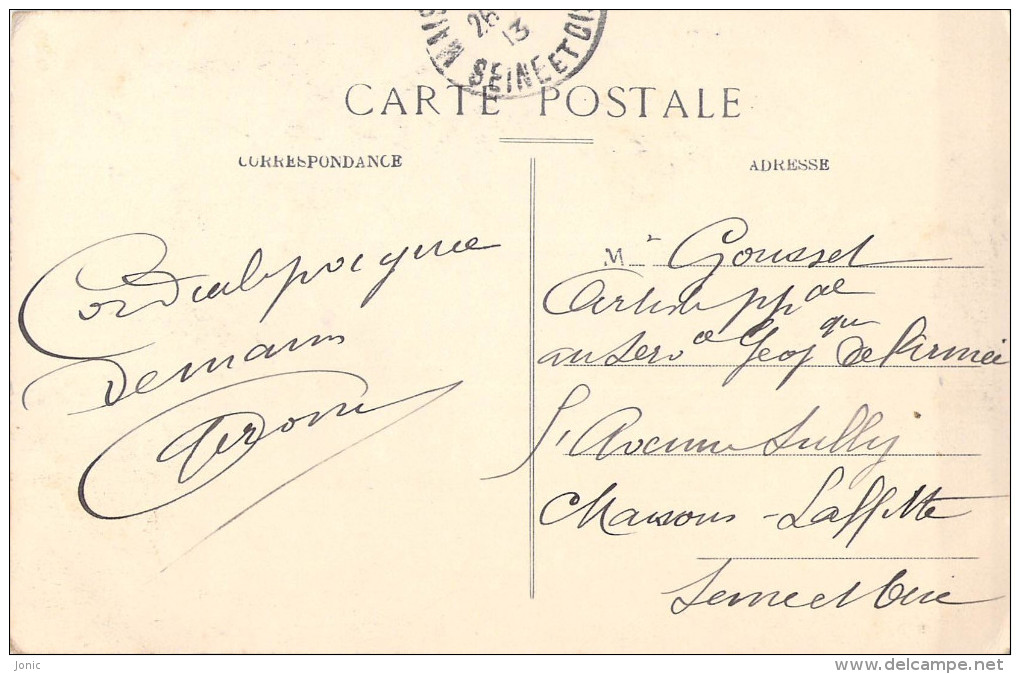 MAIS
26
13
SEINE ET OIS
CARTE POSTALE
CORRESPONDANCE
ADRESSE
Cordiale poignée
de mains
Mr Gousset
Artiste ppal
au Servce Géogque de l'Armée
5, Avenue Sully
Maisons-Laffitte
Seine et Oise
Jonic
www.delcampe.net